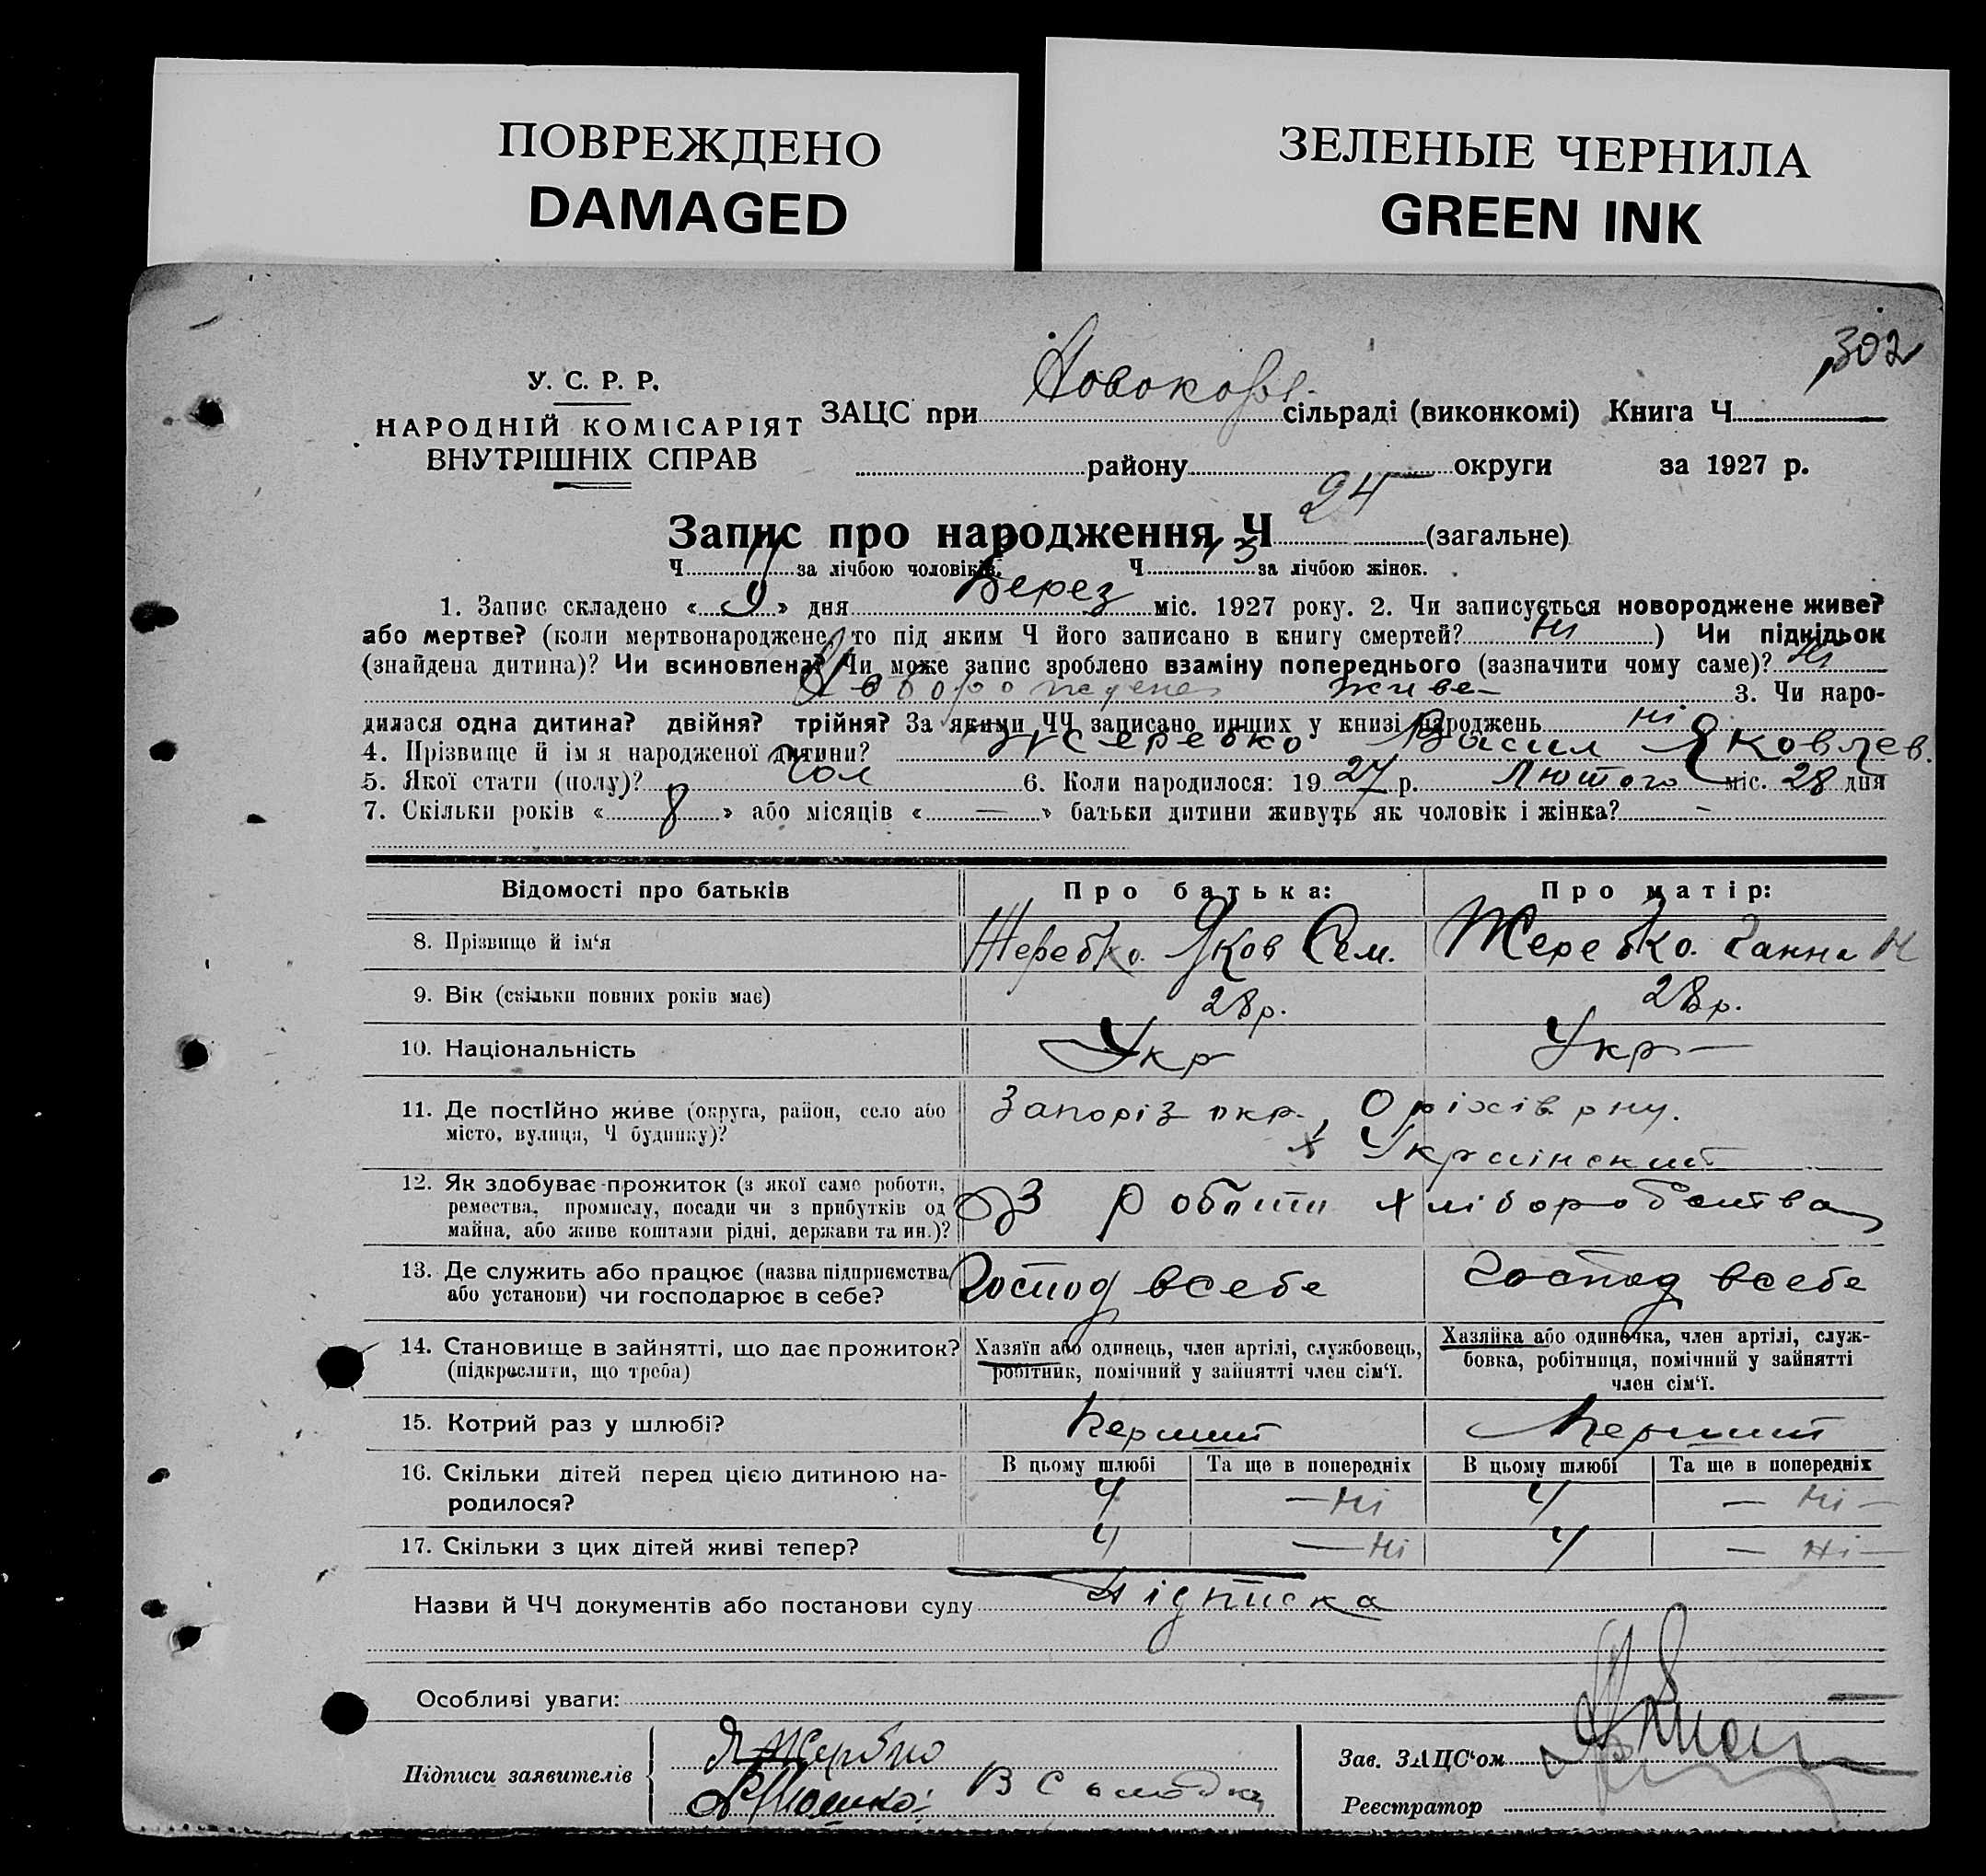 ПОВРЕЖДЕНО
DAMAGED
ЗЕЛЕНЫЕ ЧЕРНИЛА
GREEN INK
302
У. С. Р. Р.
НАРОДНІЙ КОМІСАРІЯТ
ВНУТРІШНІХ СПРАВ
ЗАЦС при сільраді (виконкомі) Книга Ч.
району округи за 1927 р.
Запис про народження Ч 24 (загальне)
Ч за лічбою чоловіків. Ч 13 за лічбою жінок.
1. Запис складено « 9 » дня Берез міс. 1927 року. 2. Чи записується новороджене живе?
або мертве? (коли мертвонароджене, то під яким Ч його записано в книгу смертей? Ні ) Чи підкідьок
(знайдена дитина)? Чи всиновлена? Чи може запис зроблено взаміну попереднього (зазначити чому саме)? Ні
Новороджене живе 3. Чи наро-
дилася одна дитина? двійня? трійня? За якими ЧЧ записано инших у книзі народжень ні
4. Прізвище й ім я народженої дитини? Жеребко Васил Яковлев.
5. Якої стати (полу)? Чол 6. Коли народилося: 19 27 р. Лютого міс. 28 дня
7. Скільки років « 8 » або місяців « — » батьки дитини живуть як чоловік і жінка? -
Відомості про батьків Про батька: Про матір:
8. Прізвище й ім‘я Жеребко Яков Сем. Жеребко Ганна Н
9. Вік (скільки повних років має) 28 р. 28 р.
10. Національність Укр Укр —
11. Де постійно живе (округа, район, село або Запоріз окр., Оріхів рну.
місто, вулиця, Ч будинку)? х Украінский
12. Як здобуває прожиток (з якої саме роботи, З роботи хліборобства
ремества, промислу, посади чи з прибутків од
майна, або живе коштами рідні, держави та ин.)?
13. Де служить або працює (назва підприємства Господ всебе Господ всебе
або установи) чи господарює в себе?
14. Становище в зайнятті, що дає прожиток? Хазяїн або одинець, член артілі, службовець, Хазяйка або одиночка, член артілі, служ-
(підкреслити, що треба) робітник, помічний у зайнятті член сім‘ї. бовка, робітниця, помічний у зайнятті
член сім‘ї.
15. Котрий раз у шлюбі? Перший Перший
16. Скільки дітей перед цією дитиною на- В цьому шлюбі Та ще в попередніх В цьому шлюбі Та ще в попередніх
родилося? 4 — Ні 4 — Ні —
17. Скільки з цих дітей живі тепер? 4 — Ні 4 — Ні —
Назви й ЧЧ документів або постанови суду Підписка
Особливі уваги:
Підписи заявителів
Зав. ЗАЦС‘ом
Реєстратор